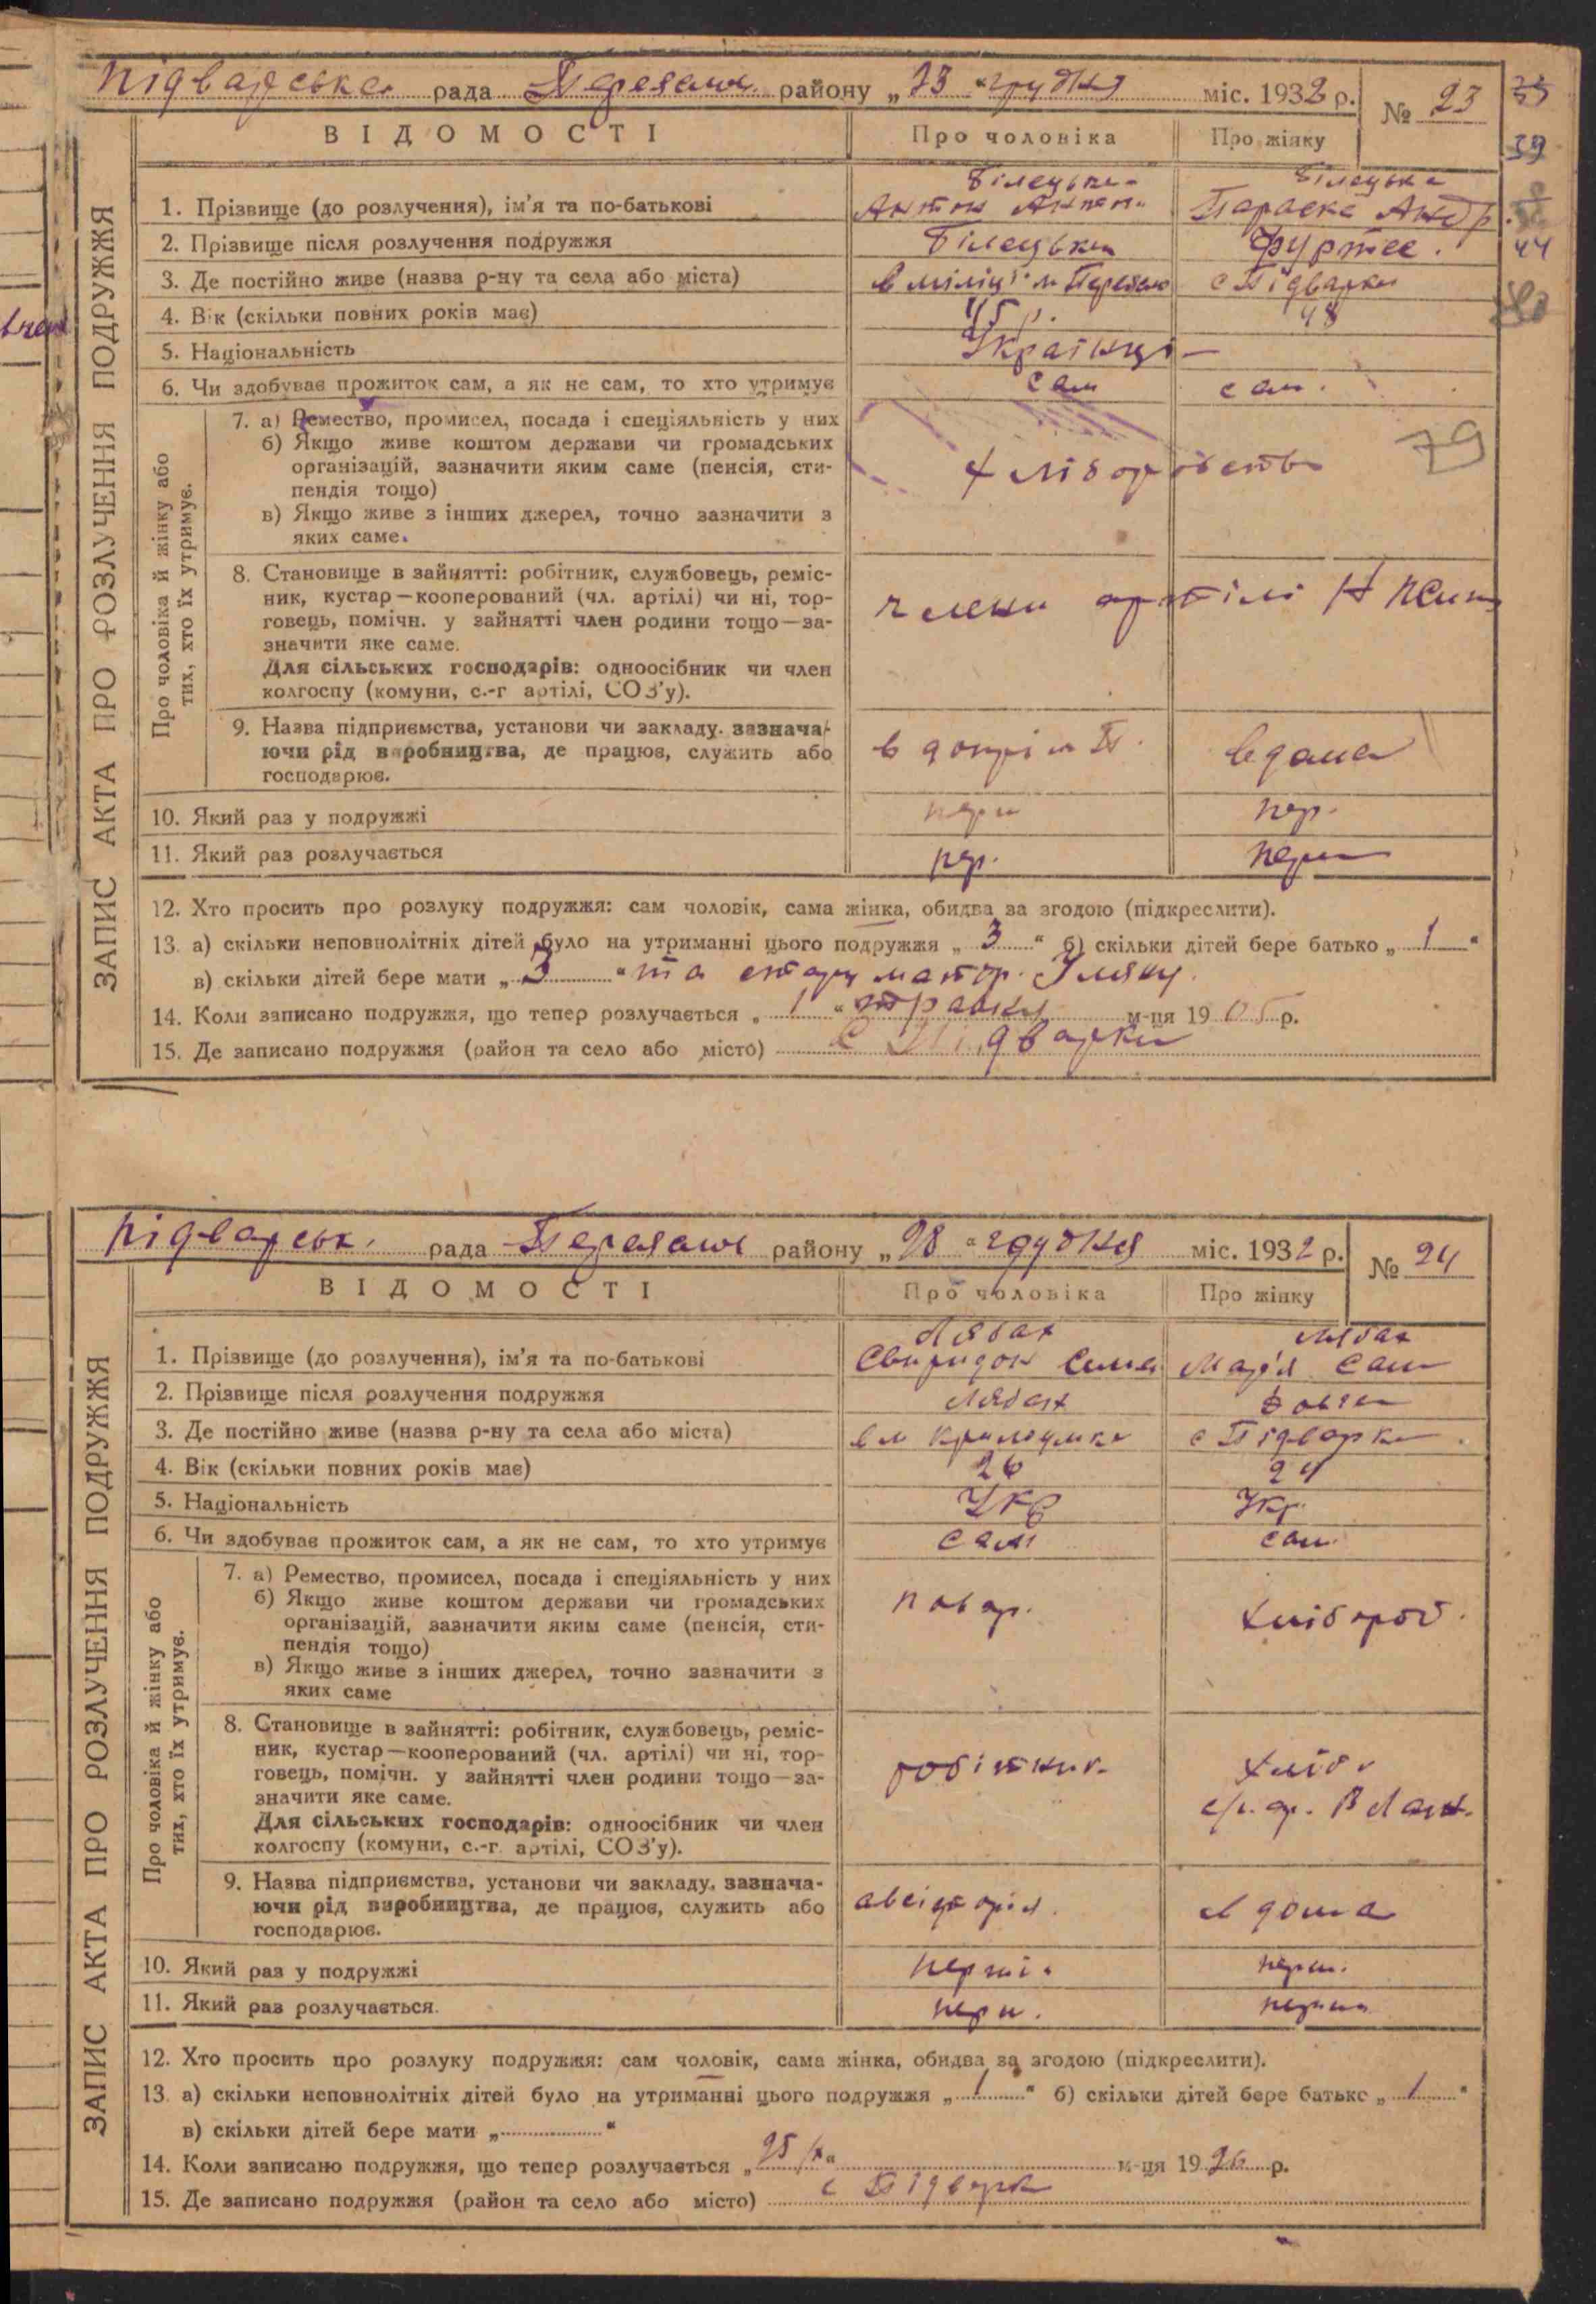 Підварська рада Переяслов. району „23“ грудня міс. 1932 р. № 23
ВІДОМОСТІ Про чоловіка Про жінку
ЗАПИС АКТА ПРО РОЗЛУЧЕННЯ ПОДРУЖЖЯ
Білецьки Білецька
1. Прізвище (до розлучення), ім'я та по-батькові Антон Параска Андр.
2. Прізвище після розлучення подружжя Білецьки
3. Де постійно живе (назва р-ну та села або міста) в міліції м Переясл с Підварки
4. Вік (скільки повних років має) 45 р. 48
5. Національність Українці
6. Чи здобуває прожиток сам, а як не сам, то хто утримує сам сам.
Про чоловіка й жінку або тих, хто їх утримує.
7. а) Ремество, промисел, посада і спеціяльність у них
б) Якщо живе коштом держави чи громадських
організацій, зазначити яким саме (пенсія, сти-
пендія тощо)
в) Якщо живе з інших джерел, точно зазначити з
яких саме.
79
8. Становище в зайнятті: робітник, службовець, реміс-
ник, кустар—кооперований (чл. артілі) чи ні, тор-
говець, помічн. у зайнятті член родини тощо—за-
значити яке саме.
Для сільських господарів: одноосібник чи член
колгоспу (комуни, с.-г артілі, СОЗ'у).
члени артілі
9. Назва підприємства, установи чи закладу. зазнача-
ючи рід виробництва, де працює, служить або
господарює.
в дома
10. Який раз у подружжі перш пер.
11. Який раз розлучається пер. перш
12. Хто просить про розлуку подружжя: сам чоловік, сама жінка, обидва за згодою (підкреслити).
13. а) скільки неповнолітніх дітей було на утриманні цього подружжя „3“ б) скільки дітей бере батько „1“
в) скільки дітей бере мати „3“ та стару матір.
14. Коли записано подружжя, що тепер розлучається „1“ травня м-ця 1905 р.
15. Де записано подружжя (район та село або місто) с Підварки
39
44
Підварськ. рада Переяслов району „28“ грудня міс. 1932 р. № 24
ВІДОМОСТІ Про чоловіка Про жінку
ЗАПИС АКТА ПРО РОЗЛУЧЕННЯ ПОДРУЖЖЯ
Лябах Лябах
1. Прізвище (до розлучення), ім'я та по-батькові Свиридон Марія Сам
2. Прізвище після розлучення подружжя Лябах
3. Де постійно живе (назва р-ну та села або міста) с Підварки
4. Вік (скільки повних років має) 26 24
5. Національність Укр Укр.
6. Чи здобуває прожиток сам, а як не сам, то хто утримує сам сам.
Про чоловіка й жінку або тих, хто їх утримує.
7. а) Ремество, промисел, посада і спеціяльність у них
б) Якщо живе коштом держави чи громадських
організацій, зазначити яким саме (пенсія, сти-
пендія тощо)
в) Якщо живе з інших джерел, точно зазначити з
яких саме
повар. хлібороб.
8. Становище в зайнятті: робітник, службовець, реміс-
ник, кустар—кооперований (чл. артілі) чи ні, тор-
говець, помічн. у зайнятті член родини тощо—за-
значити яке саме.
Для сільських господарів: одноосібник чи член
колгоспу (комуни, с.-г. артілі, СОЗ'у).
робітник. хліб.
9. Назва підприємства, установи чи закладу. зазнача-
ючи рід виробництва, де працює, служить або
господарює.
дома
10. Який раз у подружжі перш.
11. Який раз розлучається. перш. перш
12. Хто просить про розлуку подружжя: сам чоловік, сама жінка, обидва за згодою (підкреслити).
13. а) скільки неповнолітніх дітей було на утриманні цього подружжя „1“ б) скільки дітей бере батько „1“
в) скільки дітей бере мати „ “
14. Коли записано подружжя, що тепер розлучається „25/X“ м-ця 1926 р.
15. Де записано подружжя (район та село або місто) с Підварк